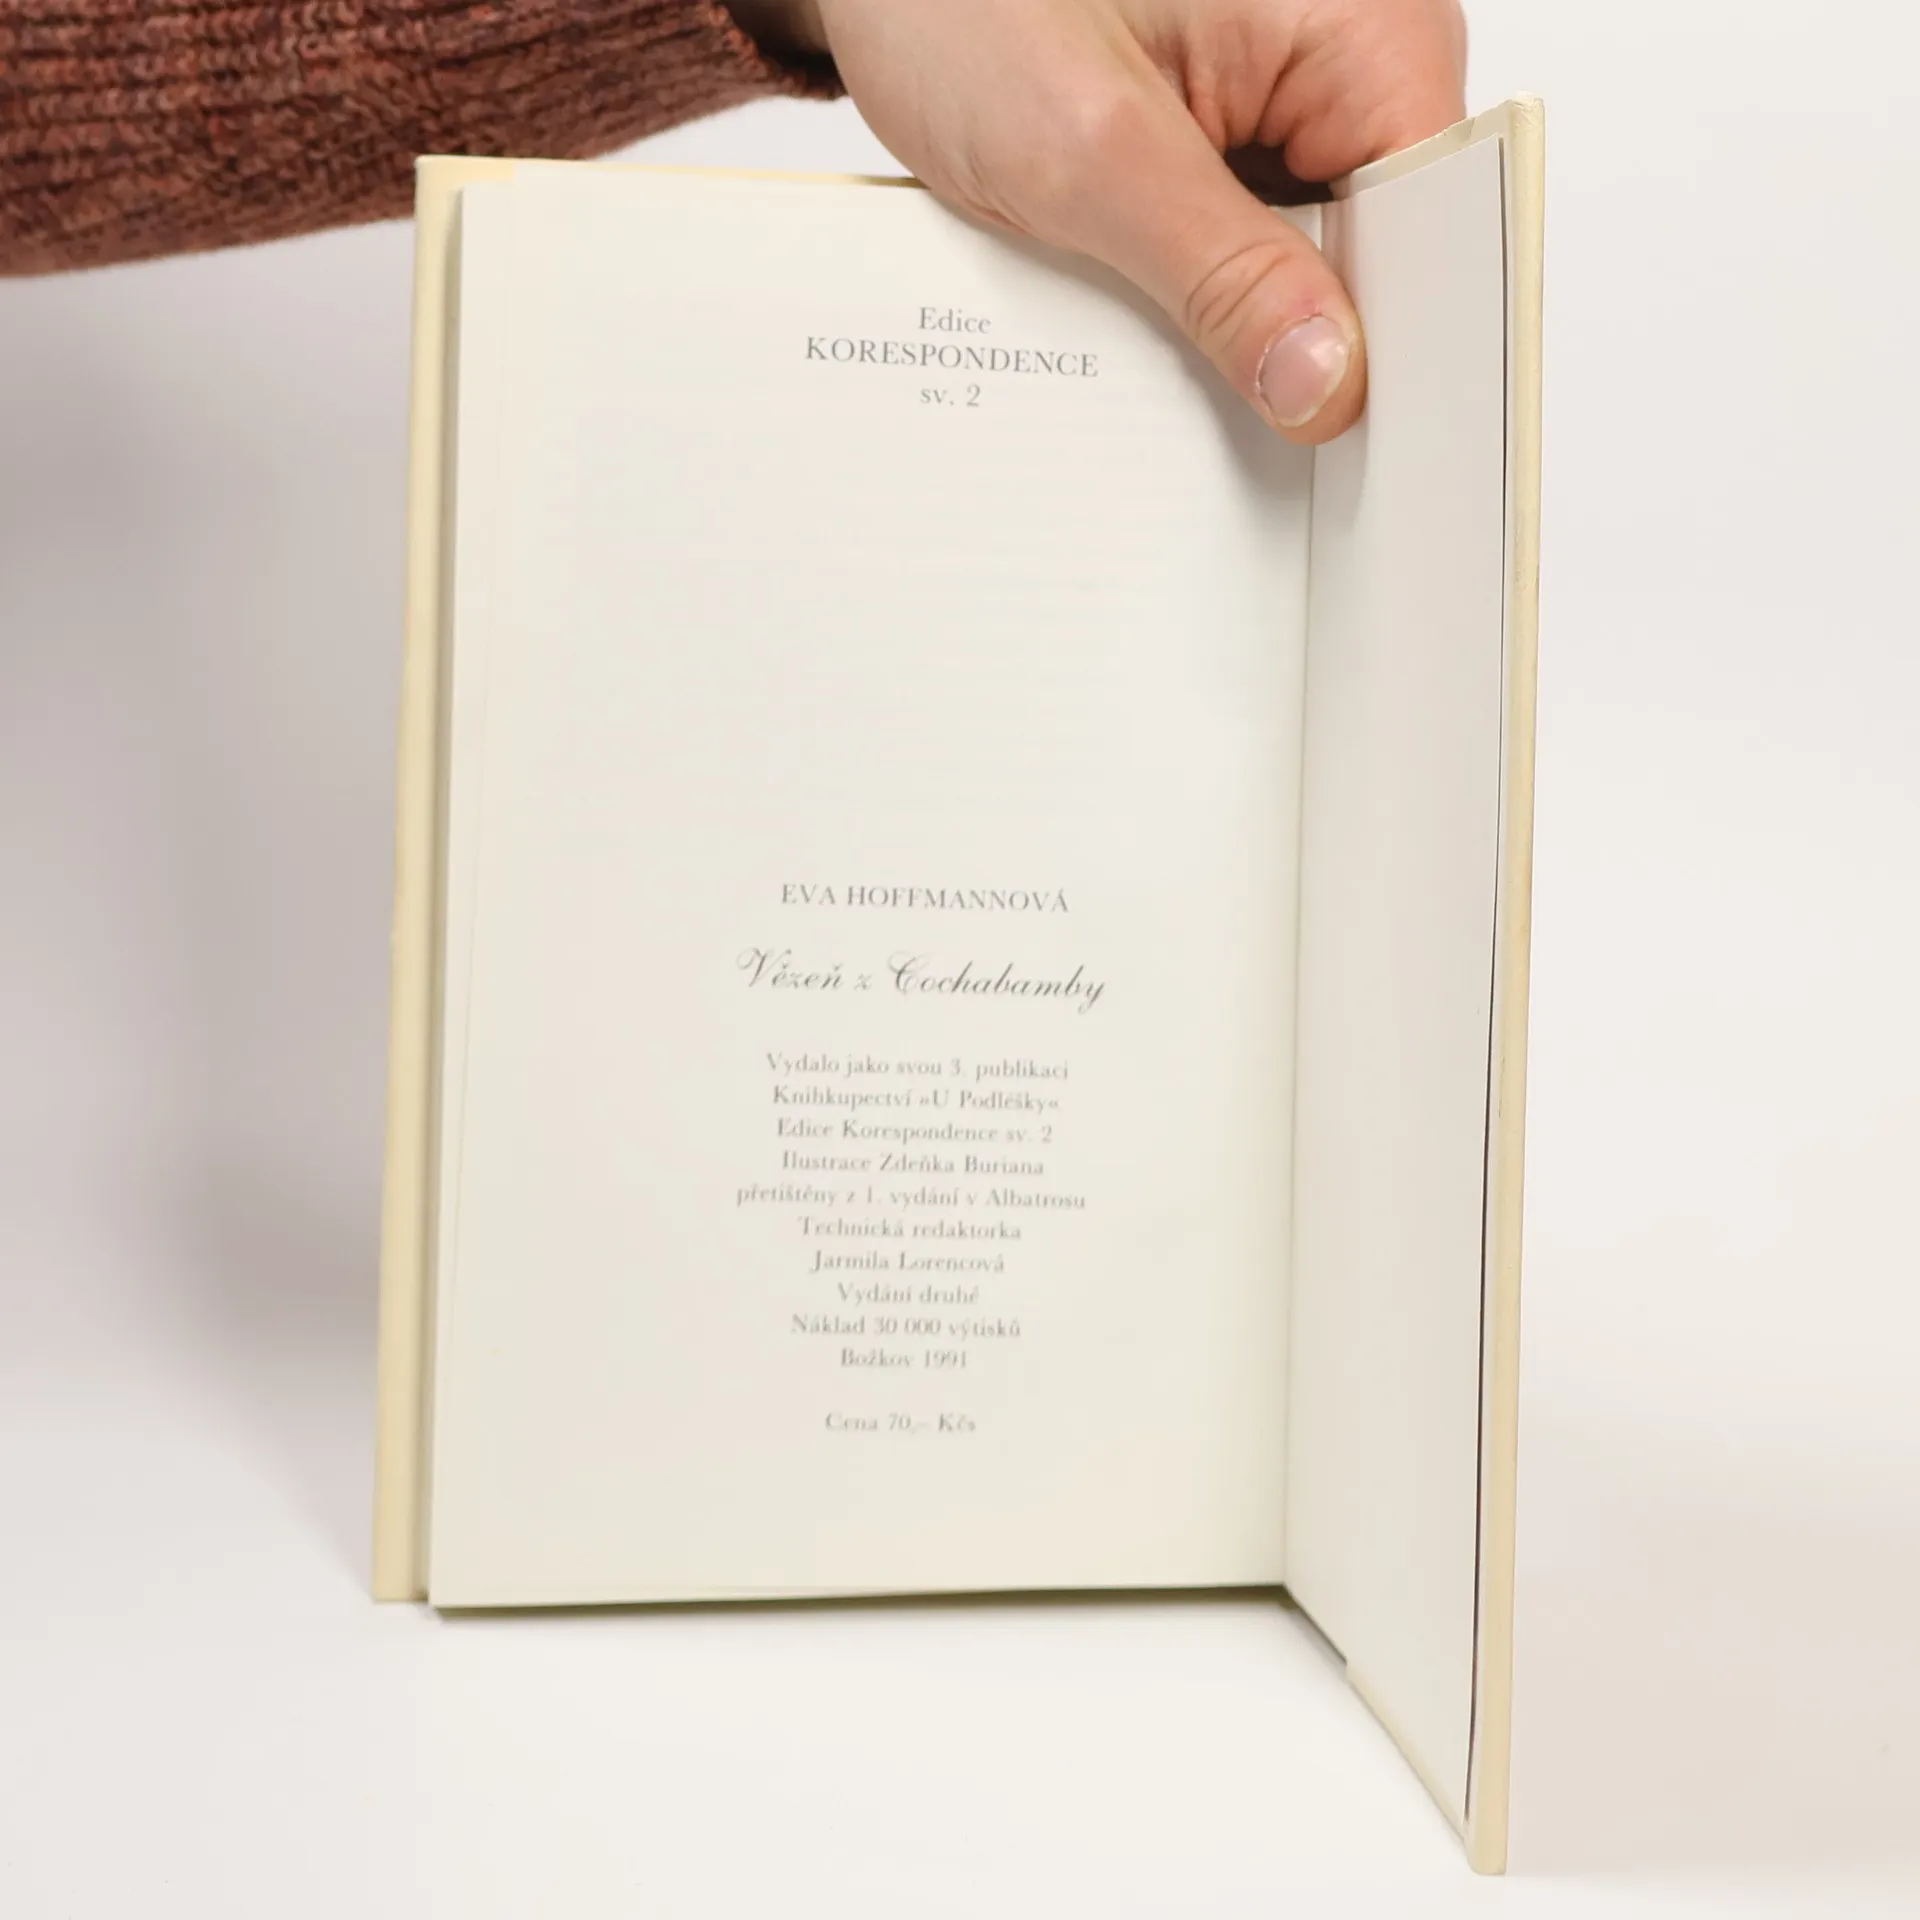 Edice
KORESPONDENCE
sv. 2
EVA HOFFMANNOVÁ
Vězeň z Cochabamby
Vydalo jako svou 3. publikaci
Knihkupectví »U Podléšky«
Edice Korespondence sv. 2
Ilustrace Zdeňka Buriana
přetištěny z 1. vydání v Albatrosu
Technická redaktorka
Jarmila Lorencová
Vydání druhé
Náklad 30 000 výtisků
Božkov 1991
Cena 70,– Kčs